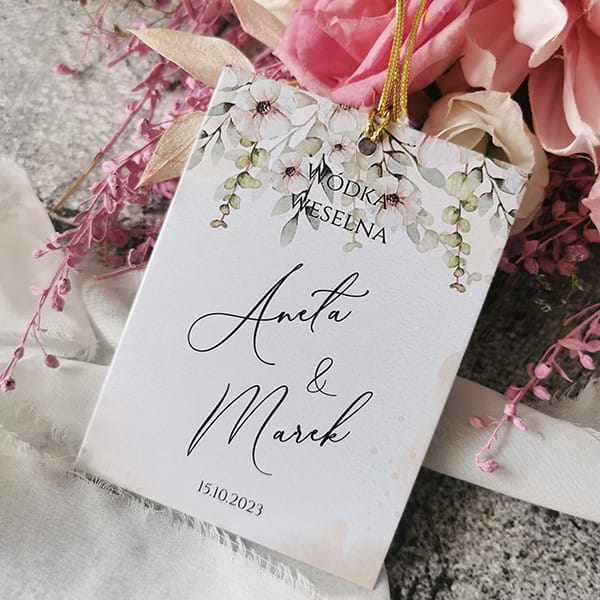 WÓDKA
WESELNA
Aneta
&
Marek
15.10.2023